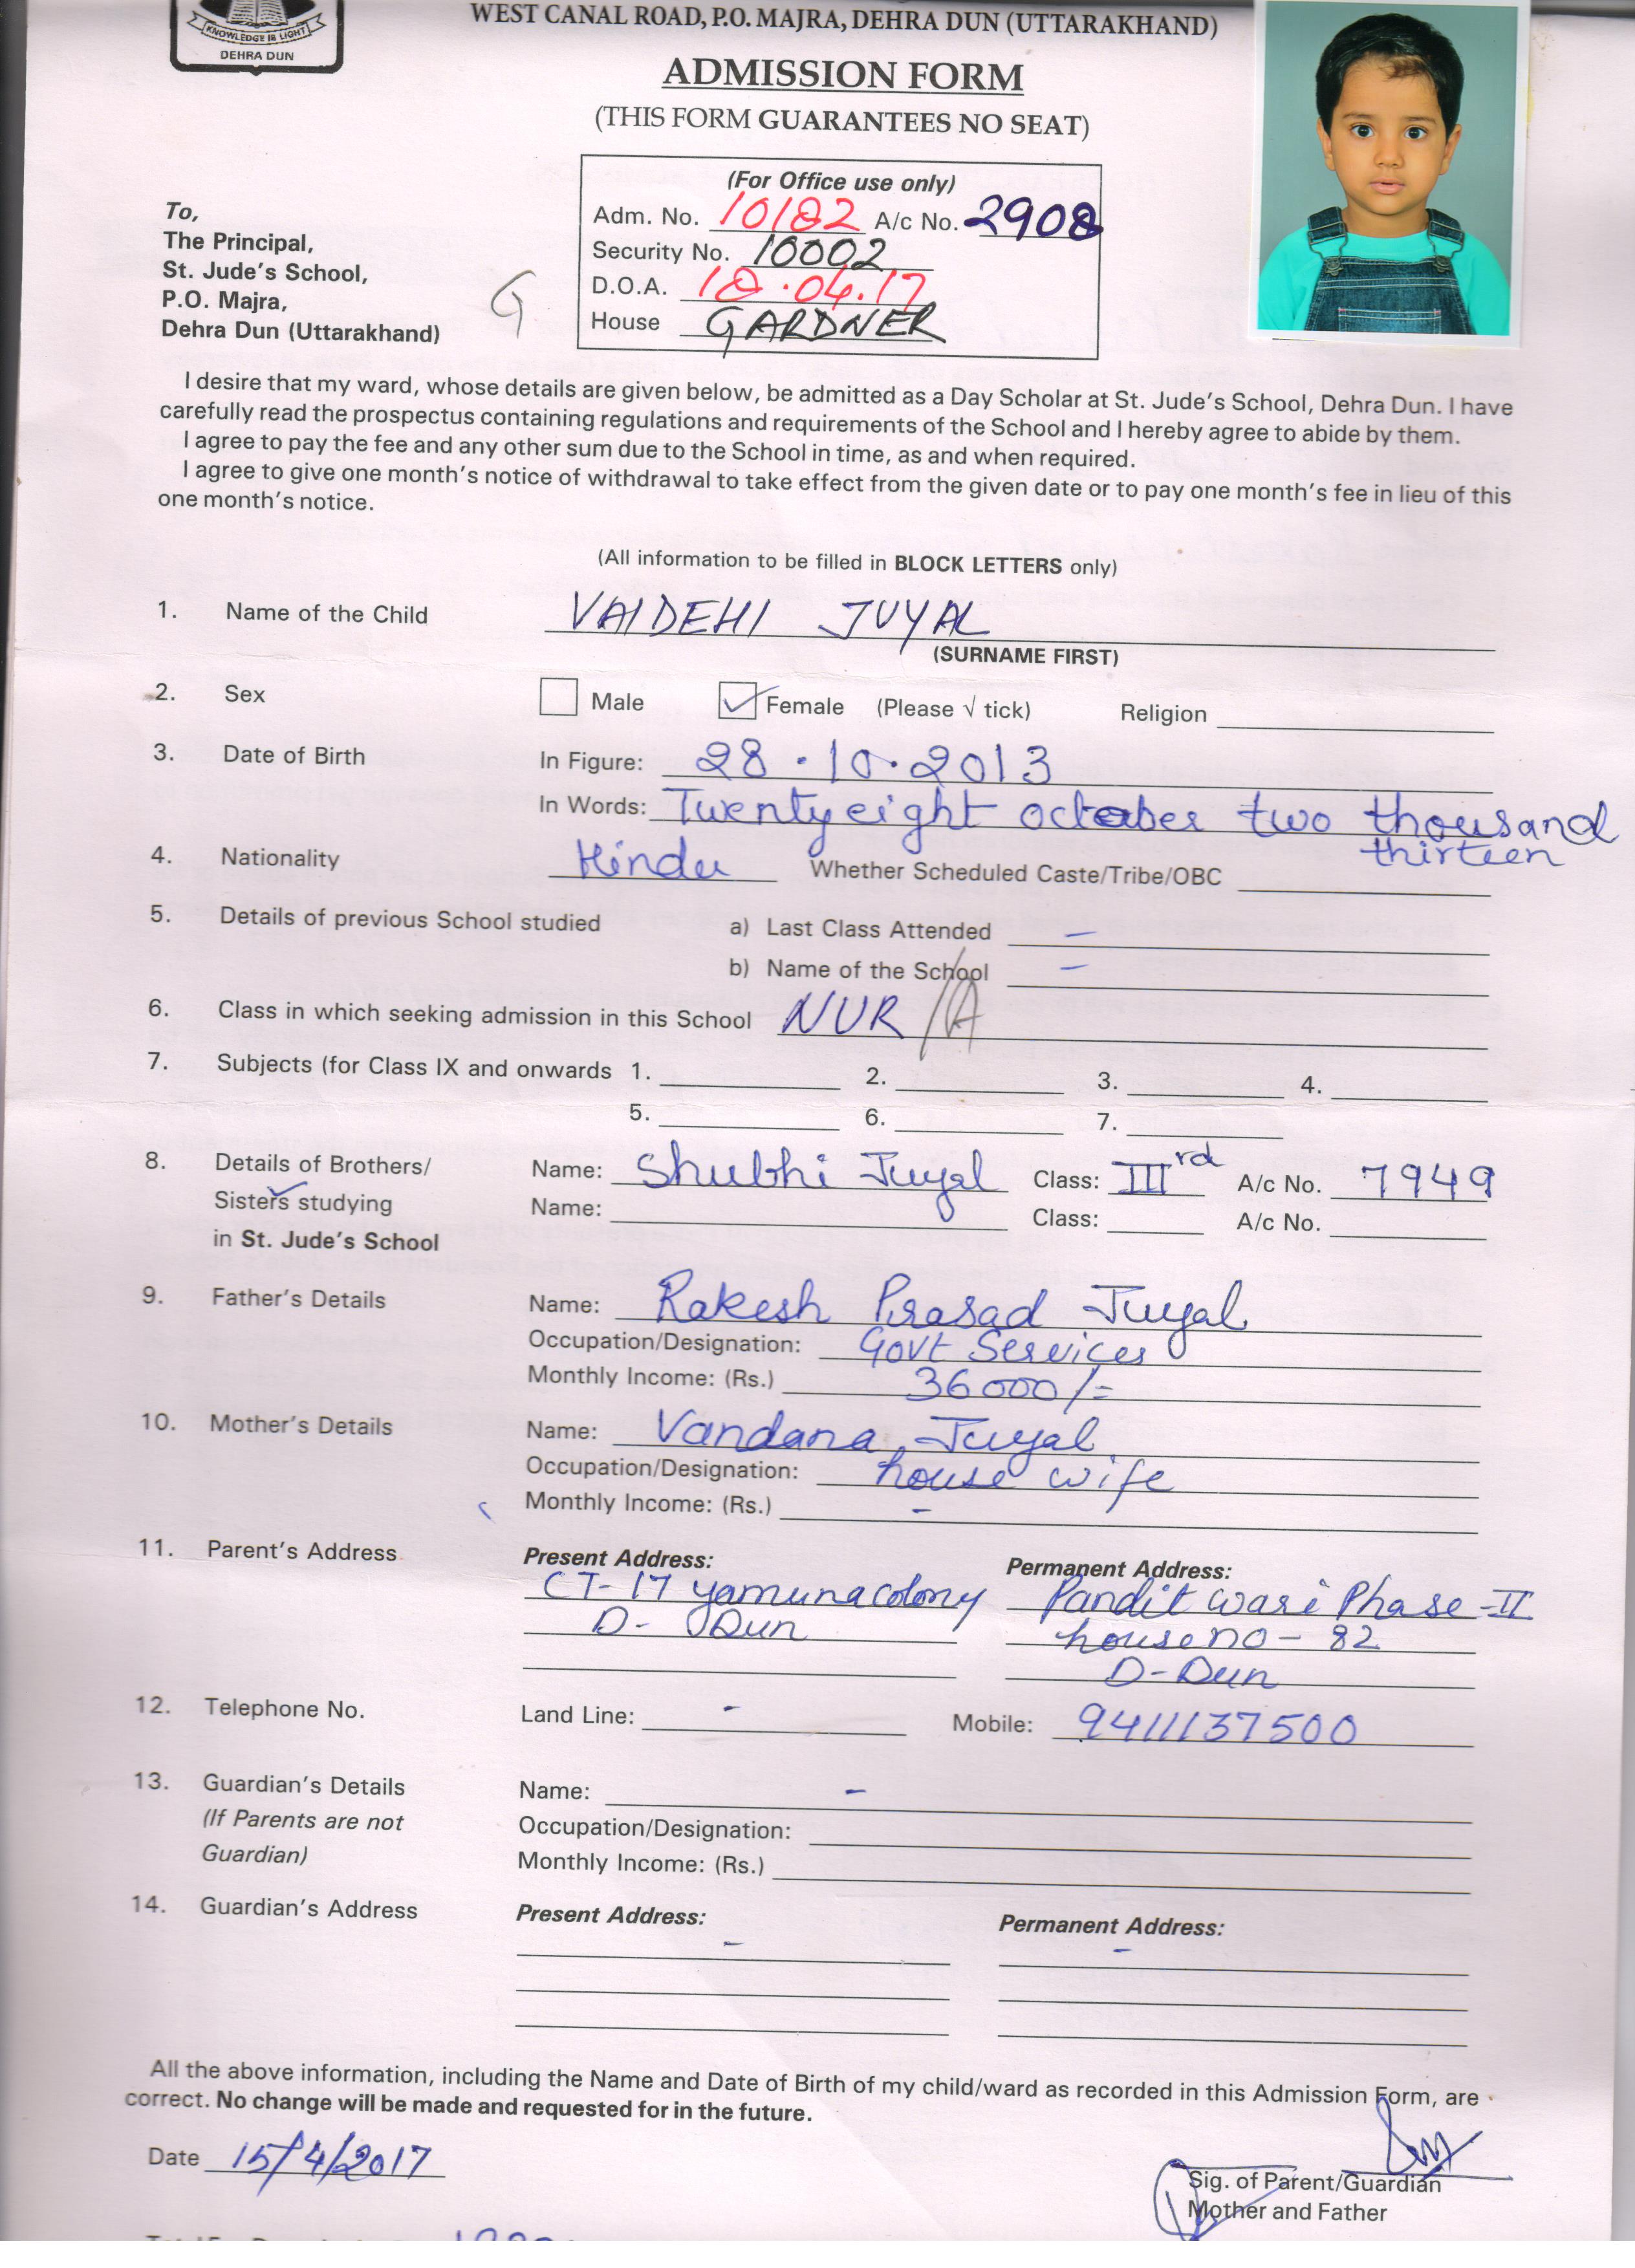 KNOWLEDGE IS LIGHT
DEHRA DUN
WEST CANAL ROAD, P.O. MAJRA, DEHRA DUN (UTTARAKHAND)
ADMISSION FORM
(THIS FORM GUARANTEES NO SEAT)
(For Office use only)
Adm. No. 10182 A/c No. 2908
Security No. 10002
D.O.A. 18.04.17
House GARDNER
To,
The Principal,
St. Jude's School,
P.O. Majra,
Dehra Dun (Uttarakhand)
G
I desire that my ward, whose details are given below, be admitted as a Day Scholar at St. Jude's School, Dehra Dun. I have
carefully read the prospectus containing regulations and requirements of the School and I hereby agree to abide by them.
I agree to pay the fee and any other sum due to the School in time, as and when required.
I agree to give one month's notice of withdrawal to take effect from the given date or to pay one month's fee in lieu of this
one month's notice.
(All information to be filled in BLOCK LETTERS only)
1. Name of the Child VAIDEHI JUYAL
(SURNAME FIRST)
2. Sex Male ✓ Female (Please √ tick) Religion
3. Date of Birth In Figure: 28.10.2013
In Words: Twenty eight october two thousand
thirteen
4. Nationality Hindu Whether Scheduled Caste/Tribe/OBC
5. Details of previous School studied a) Last Class Attended -
b) Name of the School -
6. Class in which seeking admission in this School NUR /A
7. Subjects (for Class IX and onwards 1. 2. 3. 4.
5. 6. 7.
8. Details of Brothers/ Name: Shubhi Juyal Class: IIIrd A/c No. 7949
Sisters studying Name: Class: A/c No.
in St. Jude's School
9. Father's Details Name: Rakesh Prasad Juyal
Occupation/Designation: Govt Services
Monthly Income: (Rs.) 36000/=
10. Mother's Details Name: Vandana Juyal
Occupation/Designation: house wife
Monthly Income: (Rs.) -
11. Parent's Address Present Address: Permanent Address:
CT-17 yamuna colony Pandit wari Phase-II
D-Dun house no-82
D-Dun
12. Telephone No. Land Line: - Mobile: 9411137500
13. Guardian's Details Name: -
(If Parents are not Occupation/Designation:
Guardian) Monthly Income: (Rs.)
14. Guardian's Address Present Address: Permanent Address:
- -
All the above information, including the Name and Date of Birth of my child/ward as recorded in this Admission Form, are
correct. No change will be made and requested for in the future.
Date 15/4/2017
Sig. of Parent/Guardian
Mother and Father